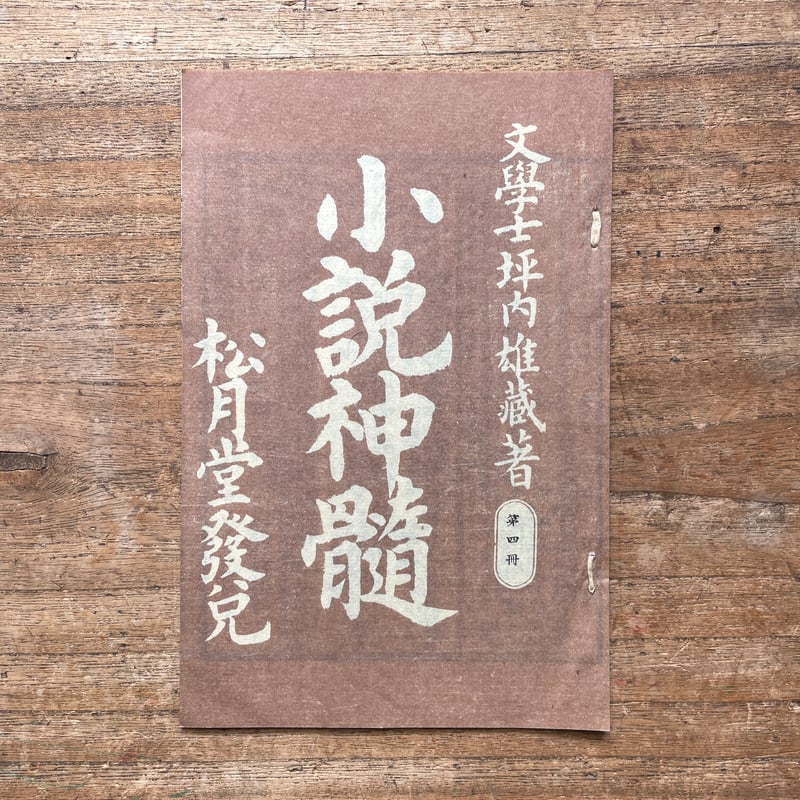 文學士坪内雄藏著
第四冊
小説神髓
松月堂發兌